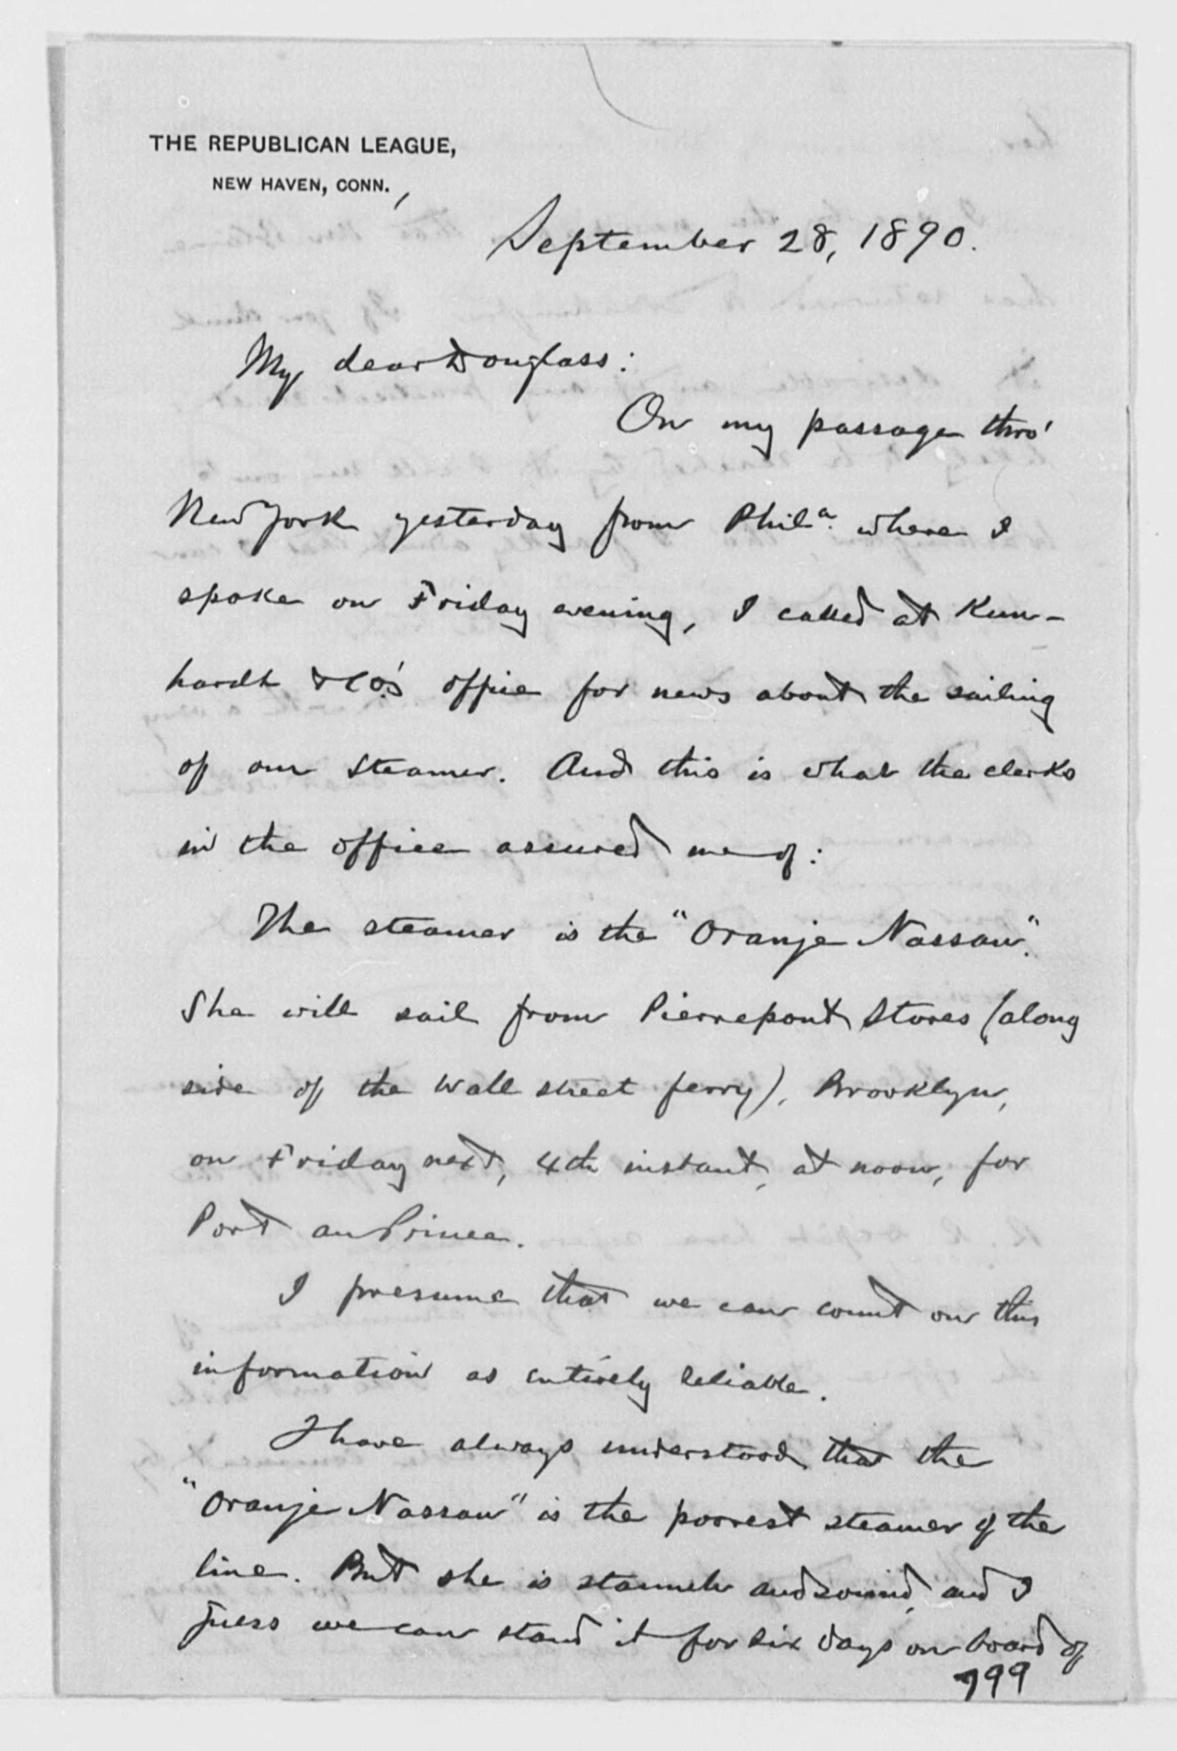 THE REPUBLICAN LEAGUE,
NEW HAVEN, CONN.,
September 28, 1890.
My dear Douglass:
On my passage thro'
New York yesterday from Phila. where I
spoke on Friday evening, I called at Kun-
hardt & Co's. office for news about the sailing
of our steamer. And this is what the clerks
in the office assured me of:
The steamer is the "Oranje Nassau".
She will sail from Pierrepont Stores (along
side of the Wall street ferry), Brooklyn,
on Friday next, 4th instant, at noon, for
Port au Prince.
I presume that we can count on this
information as entirely reliable.
I have always understood that the
"Oranje Nassau" is the poorest steamer of the
line. But she is staunch and sound, and I
guess we can stand it for six days on board of
799